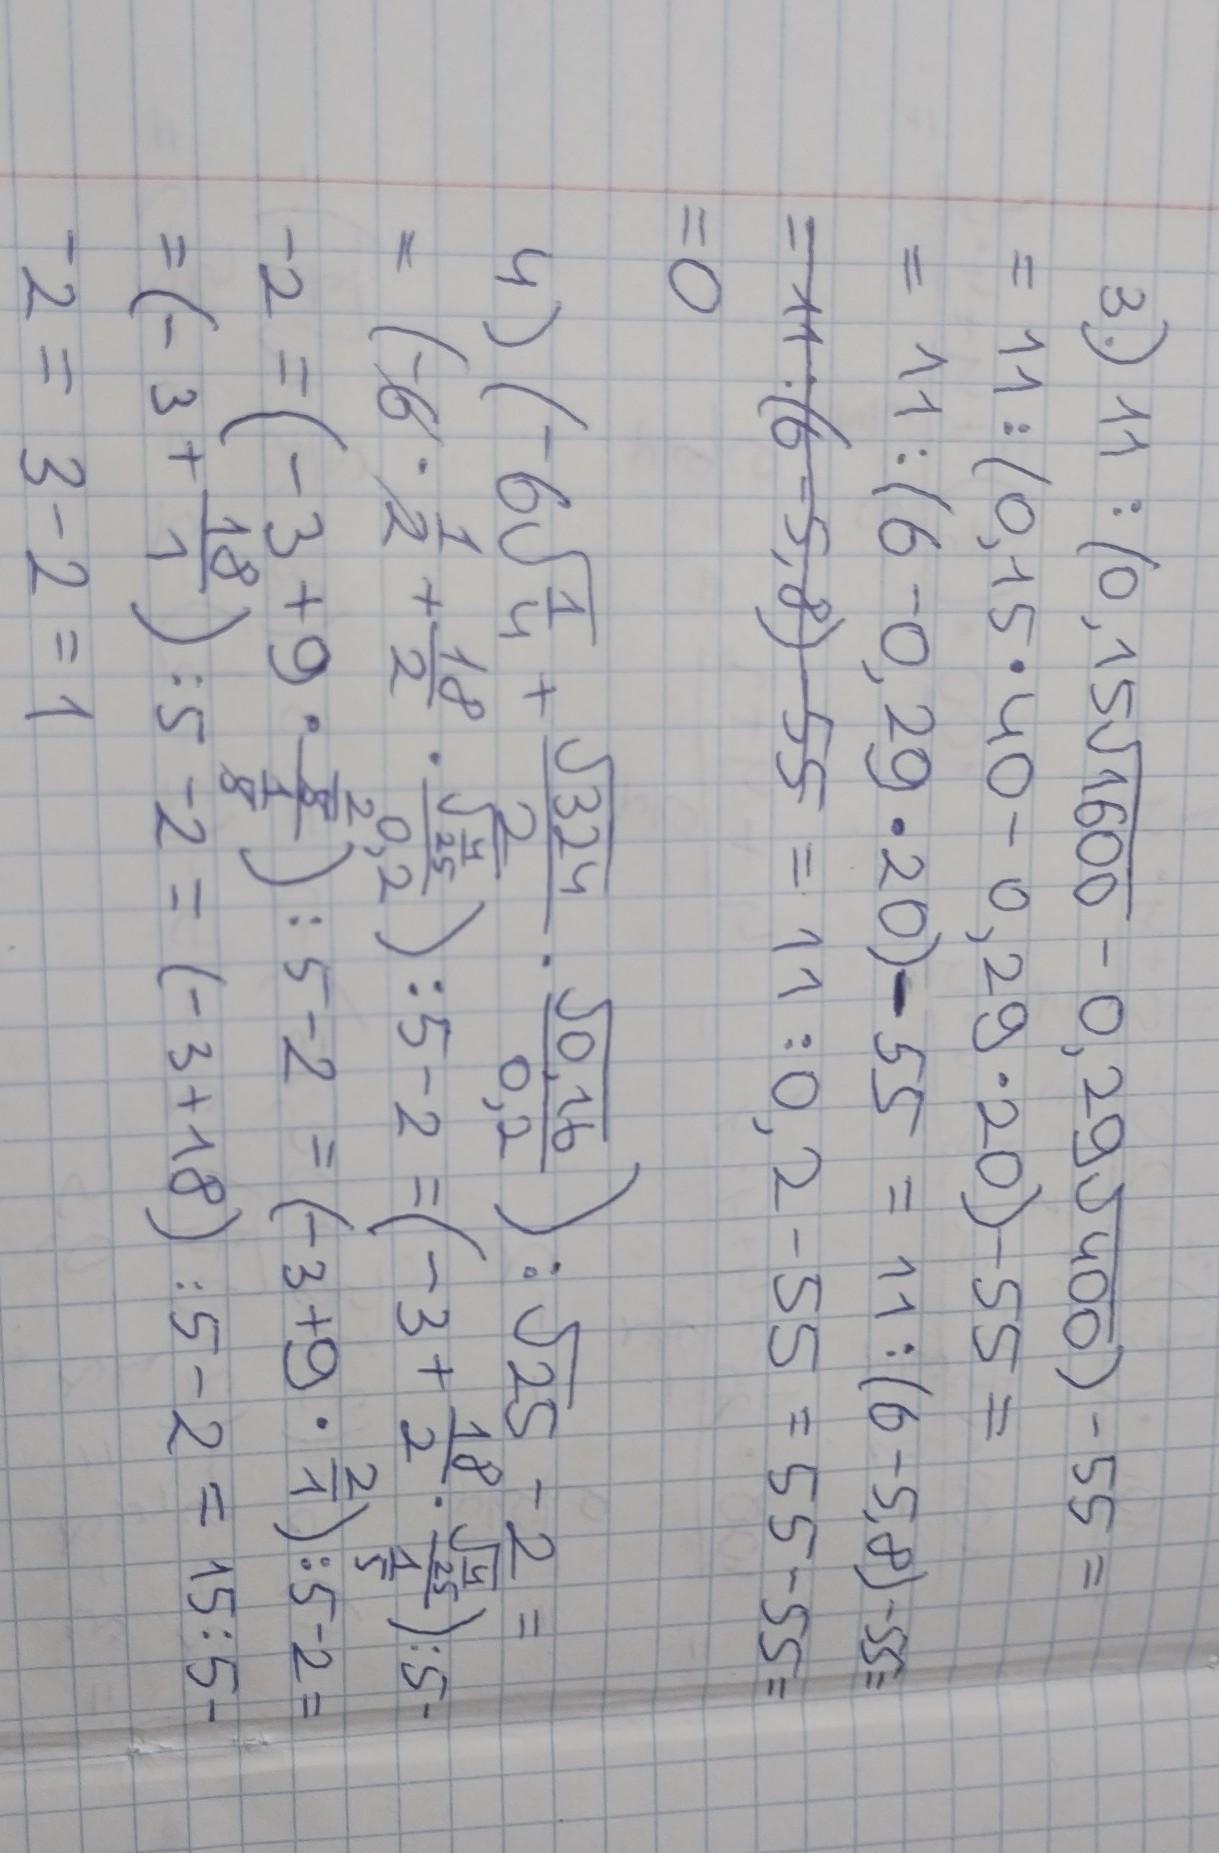 3.) 11 : (0,15√1600 - 0,29√400) - 55 =
= 11 : (0,15 · 40 - 0,29 · 20) - 55 =
= 11 : (6 - 0,29 · 20) - 55 = 11 : (6 - 5,8) - 55 =
= 11 : (6 - 5,8) 55 = 11 : 0,2 - 55 = 55 - 55 =
= 0
4) (-6√(1/4) + √324/2 · √0,16/0,2) : √25 - 2 =
= (-6 · 1/2 + 18/2 · √(4/25)/0,2) : 5 - 2 = (-3 + 18/2 · √(4/25)/(1/5)) : 5 -
-2 = (-3 + 9 · (2/5)/(1/5)) : 5 - 2 = (-3 + 9 · 2/1) : 5 - 2 =
= (-3 + 18/1) : 5 - 2 = (-3 + 18) : 5 - 2 = 15 : 5 -
-2 = 3 - 2 = 1